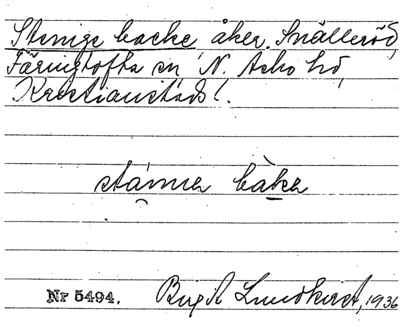 Stenige backe åker, Snälleröd,
Färingtofta sn, N. Åsbo hd,
Kristianstads l.
stánna bàka
Nr 5494. Birgit Lundkvist, 1936